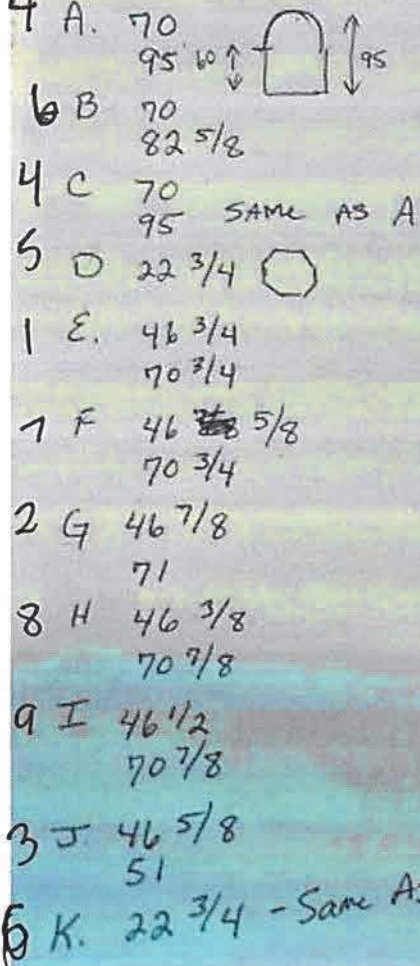 4 A. 70
95 60 95
6 B 70
82 5/8
4 C 70
95 SAME AS A
5 D 22 3/4
1 E. 46 3/4
70 3/4
7 F 46 5/8
70 3/4
2 G 46 7/8
71
8 H 46 3/8
70 7/8
9 I 46 1/2
70 7/8
3 J 46 5/8
51
K. 22 3/4 - Same As